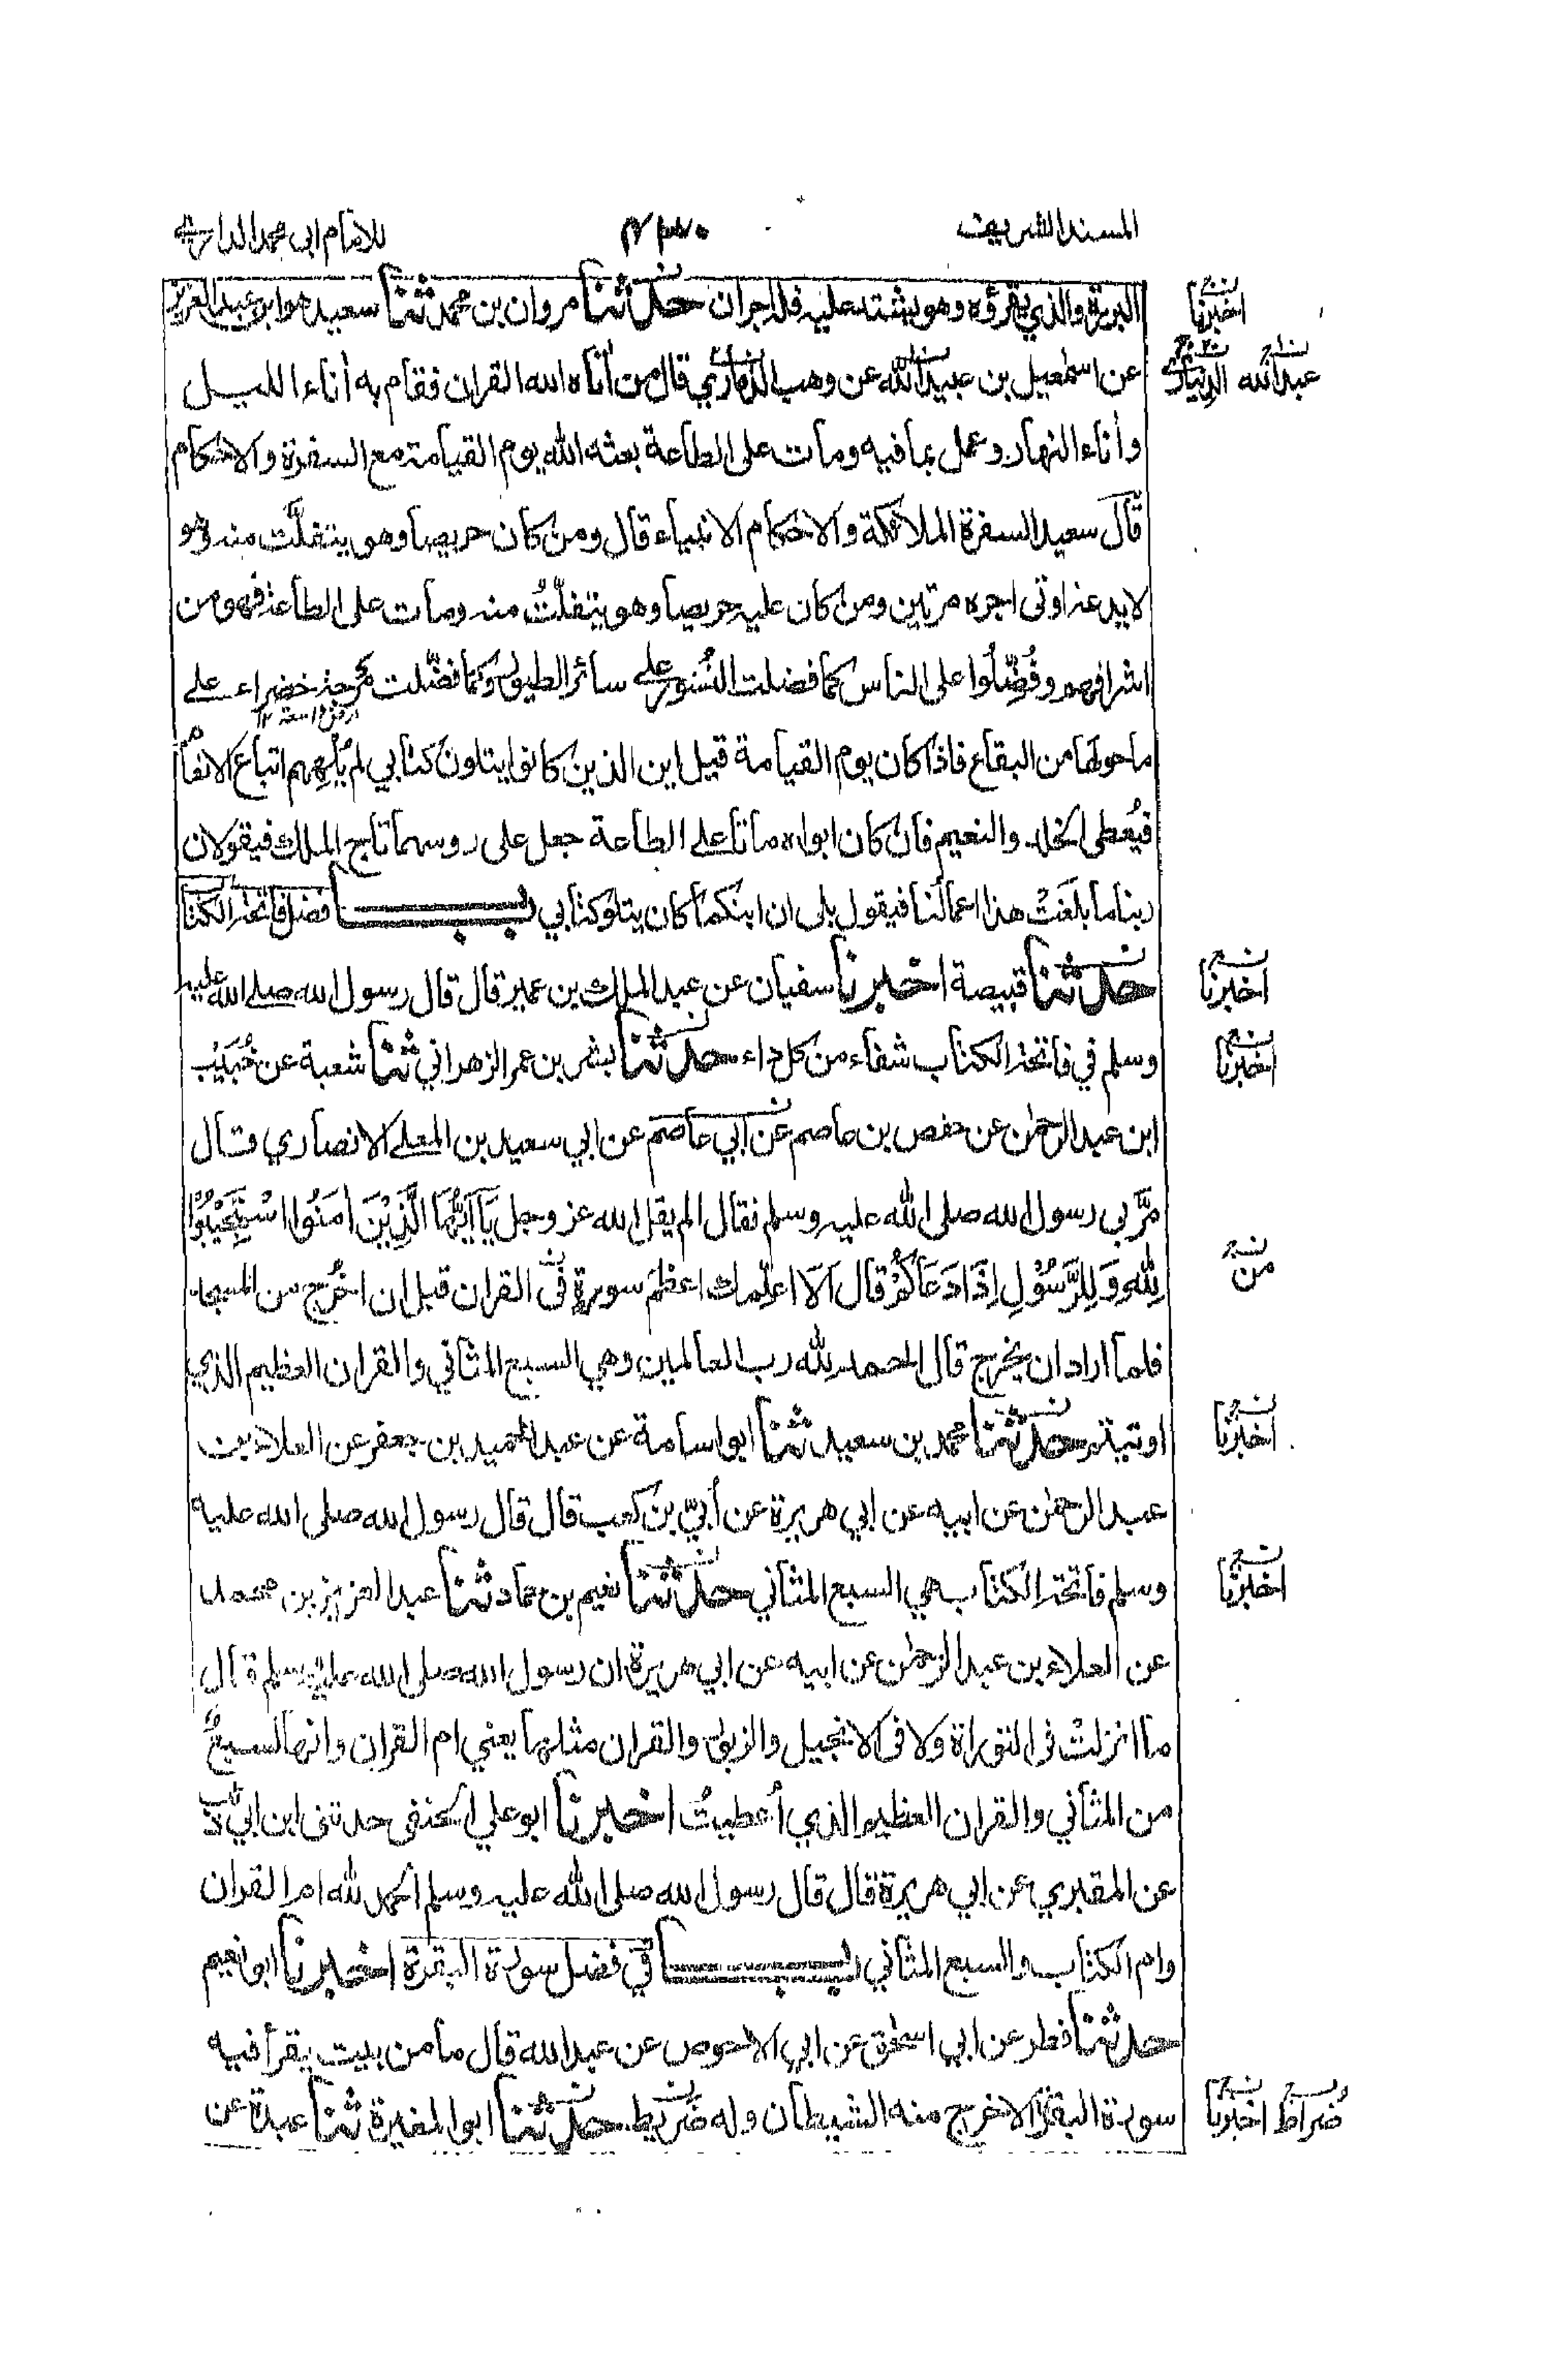 المسند الشريف
للامام ابي محمد الدارمي
البررة والذي يقرؤه وهو يشتد عليه فله اجران حدثنا مروان بن محمد ثنا سعيد هوا بن عبد العزيز
اخبرنا
عن اسمعيل بن عبيد الله عن وهب الذماري قال من أتاه الله القران فقام به أناء الليل
عبد الله
وأناء النهار وعمل بما فيه ومات على الطاعة بعثه الله يوم القيامة مع السفرة والاحكام
قال سعيد السفرة الملائكة والاحكام الانبياء قال ومن كان حريصا وهو يتفلت منه وهو
لا يدعه اوتى اجره مرتين ومن كان عليه حريصا وهو يتفلت منه ومات على الطاعة فهو من
اشرافهم وفُضِّلُوا على الناس كما فضلت النُسُور على سائر الطيور وكما فضّلت مرجة خضراء على
ما حولها من البقاع فاذا كان يوم القيامة قيل اين الذين كانوا يتلون كتابي لم يُلههم اتباع الانعام
فيُعطى الخلد والنعيم فان كان ابواه ماتا على الطاعة جعل على روسهما تاج الملك فيقولان
ربنا ما بلغَتْ هذا اعمالنا فيقول بلى ان ابنكما كان يتلو كتابي باب فضل فاتحة الكتاب
حدثنا قبيصة اخبرنا سفيان عن عبد الملك بن عمير قال قال رسول الله صلى الله عليه
اخبرنا
وسلم في فاتحة الكتاب شفاء من كل داء حدثنا بشر بن عمر الزهراني ثنا شعبة عن خُبَيْب
اخبرنا
ابن عبد الرحمٰن عن حفص بن عاصم عن ابي عاصم عن ابي سعيد بن المعلى الانصاري قال
مرَّ بي رسول الله صلى الله عليه وسلم فقال الم يقل الله عز وجل يَا أَيُّهَا الَّذِيْنَ اٰمَنُوا اسْتَجِيْبُوْا
لِلّٰهِ وَلِلرَّسُوْلِ اِذَا دَعَاكُمْ قال اَلَا اعلّمك اعظمَ سورةٍ في القران قبل ان اخرُج من المسجد
من
فلما اراد ان يخرج قال الحمد لله رب العالمين وهي السبع المثاني والقران العظيم الذي
اوتيته حدثنا محمد بن سعيد ثنا ابو اسامة عن عبد الحميد بن جعفر عن العلاء بن
اخبرنا
عبد الرحمٰن عن ابيه عن ابي هريرة عن أبيّ بن كعب قال قال رسول الله صلى الله عليه
وسلم فاتحة الكتاب هي السبع المثاني حدثنا نعيم بن حماد ثنا عبد العزيز بن محمد
اخبرنا
عن العلاء بن عبد الرحمٰن عن ابيه عن ابي هريرة ان رسول الله صلى الله عليه وسلم قال
ما انزلتْ في التوراة ولا في الانجيل والزبور والقران مثلها يعني ام القران وانها لسبعٌ
من المثاني والقران العظيم الذي أُعطيتُ اخبرنا ابو علي الحنفي حدثنى ابن ابي ذئب
عن المقبري عن ابي هريرة قال قال رسول الله صلى الله عليه وسلم الحمد لله ام القران
وام الكتاب والسبع المثاني باب في فضل سورة البقرة اخبرنا ابو نعيم
حدثنا فطر عن ابي اسحٰق عن ابي الاحوص عن عبد الله قال ما من بيت يقرأ فيه
سورة البقرة الا خرج منه الشيطان وله ضريط حدثنا ابو المغيرة ثنا عبدة عن
ضراط اخبرنا